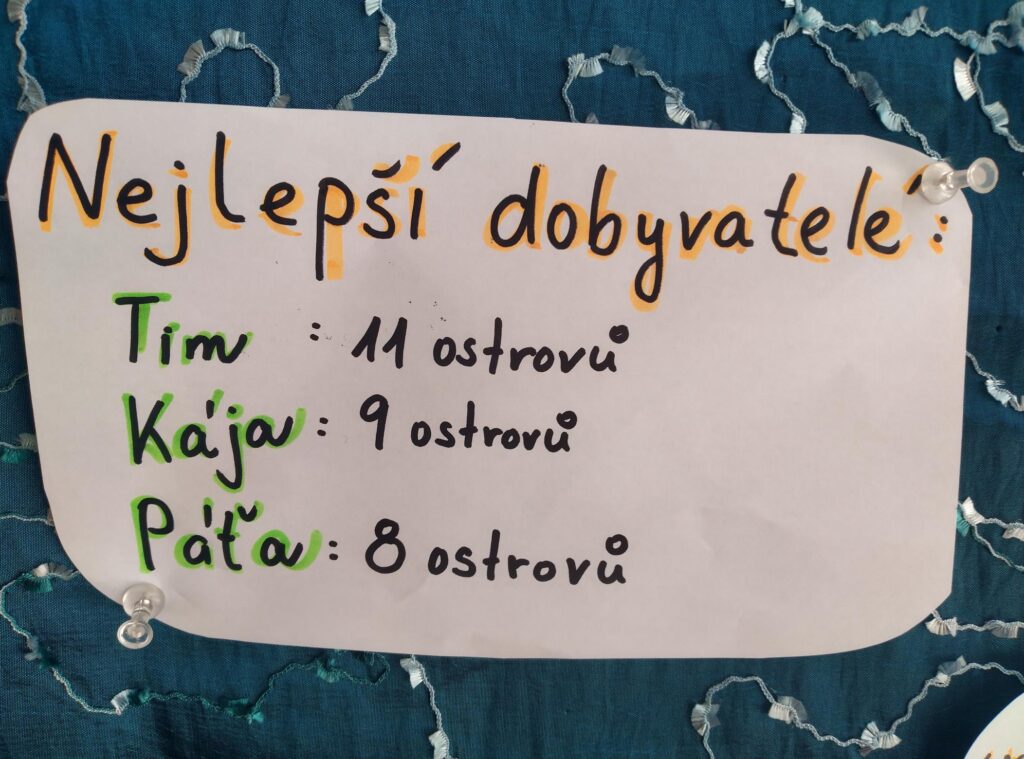 Nejlepší dobyvatelé:
Tim : 11 ostrovů
Kája : 9 ostrovů
Páťa : 8 ostrovů